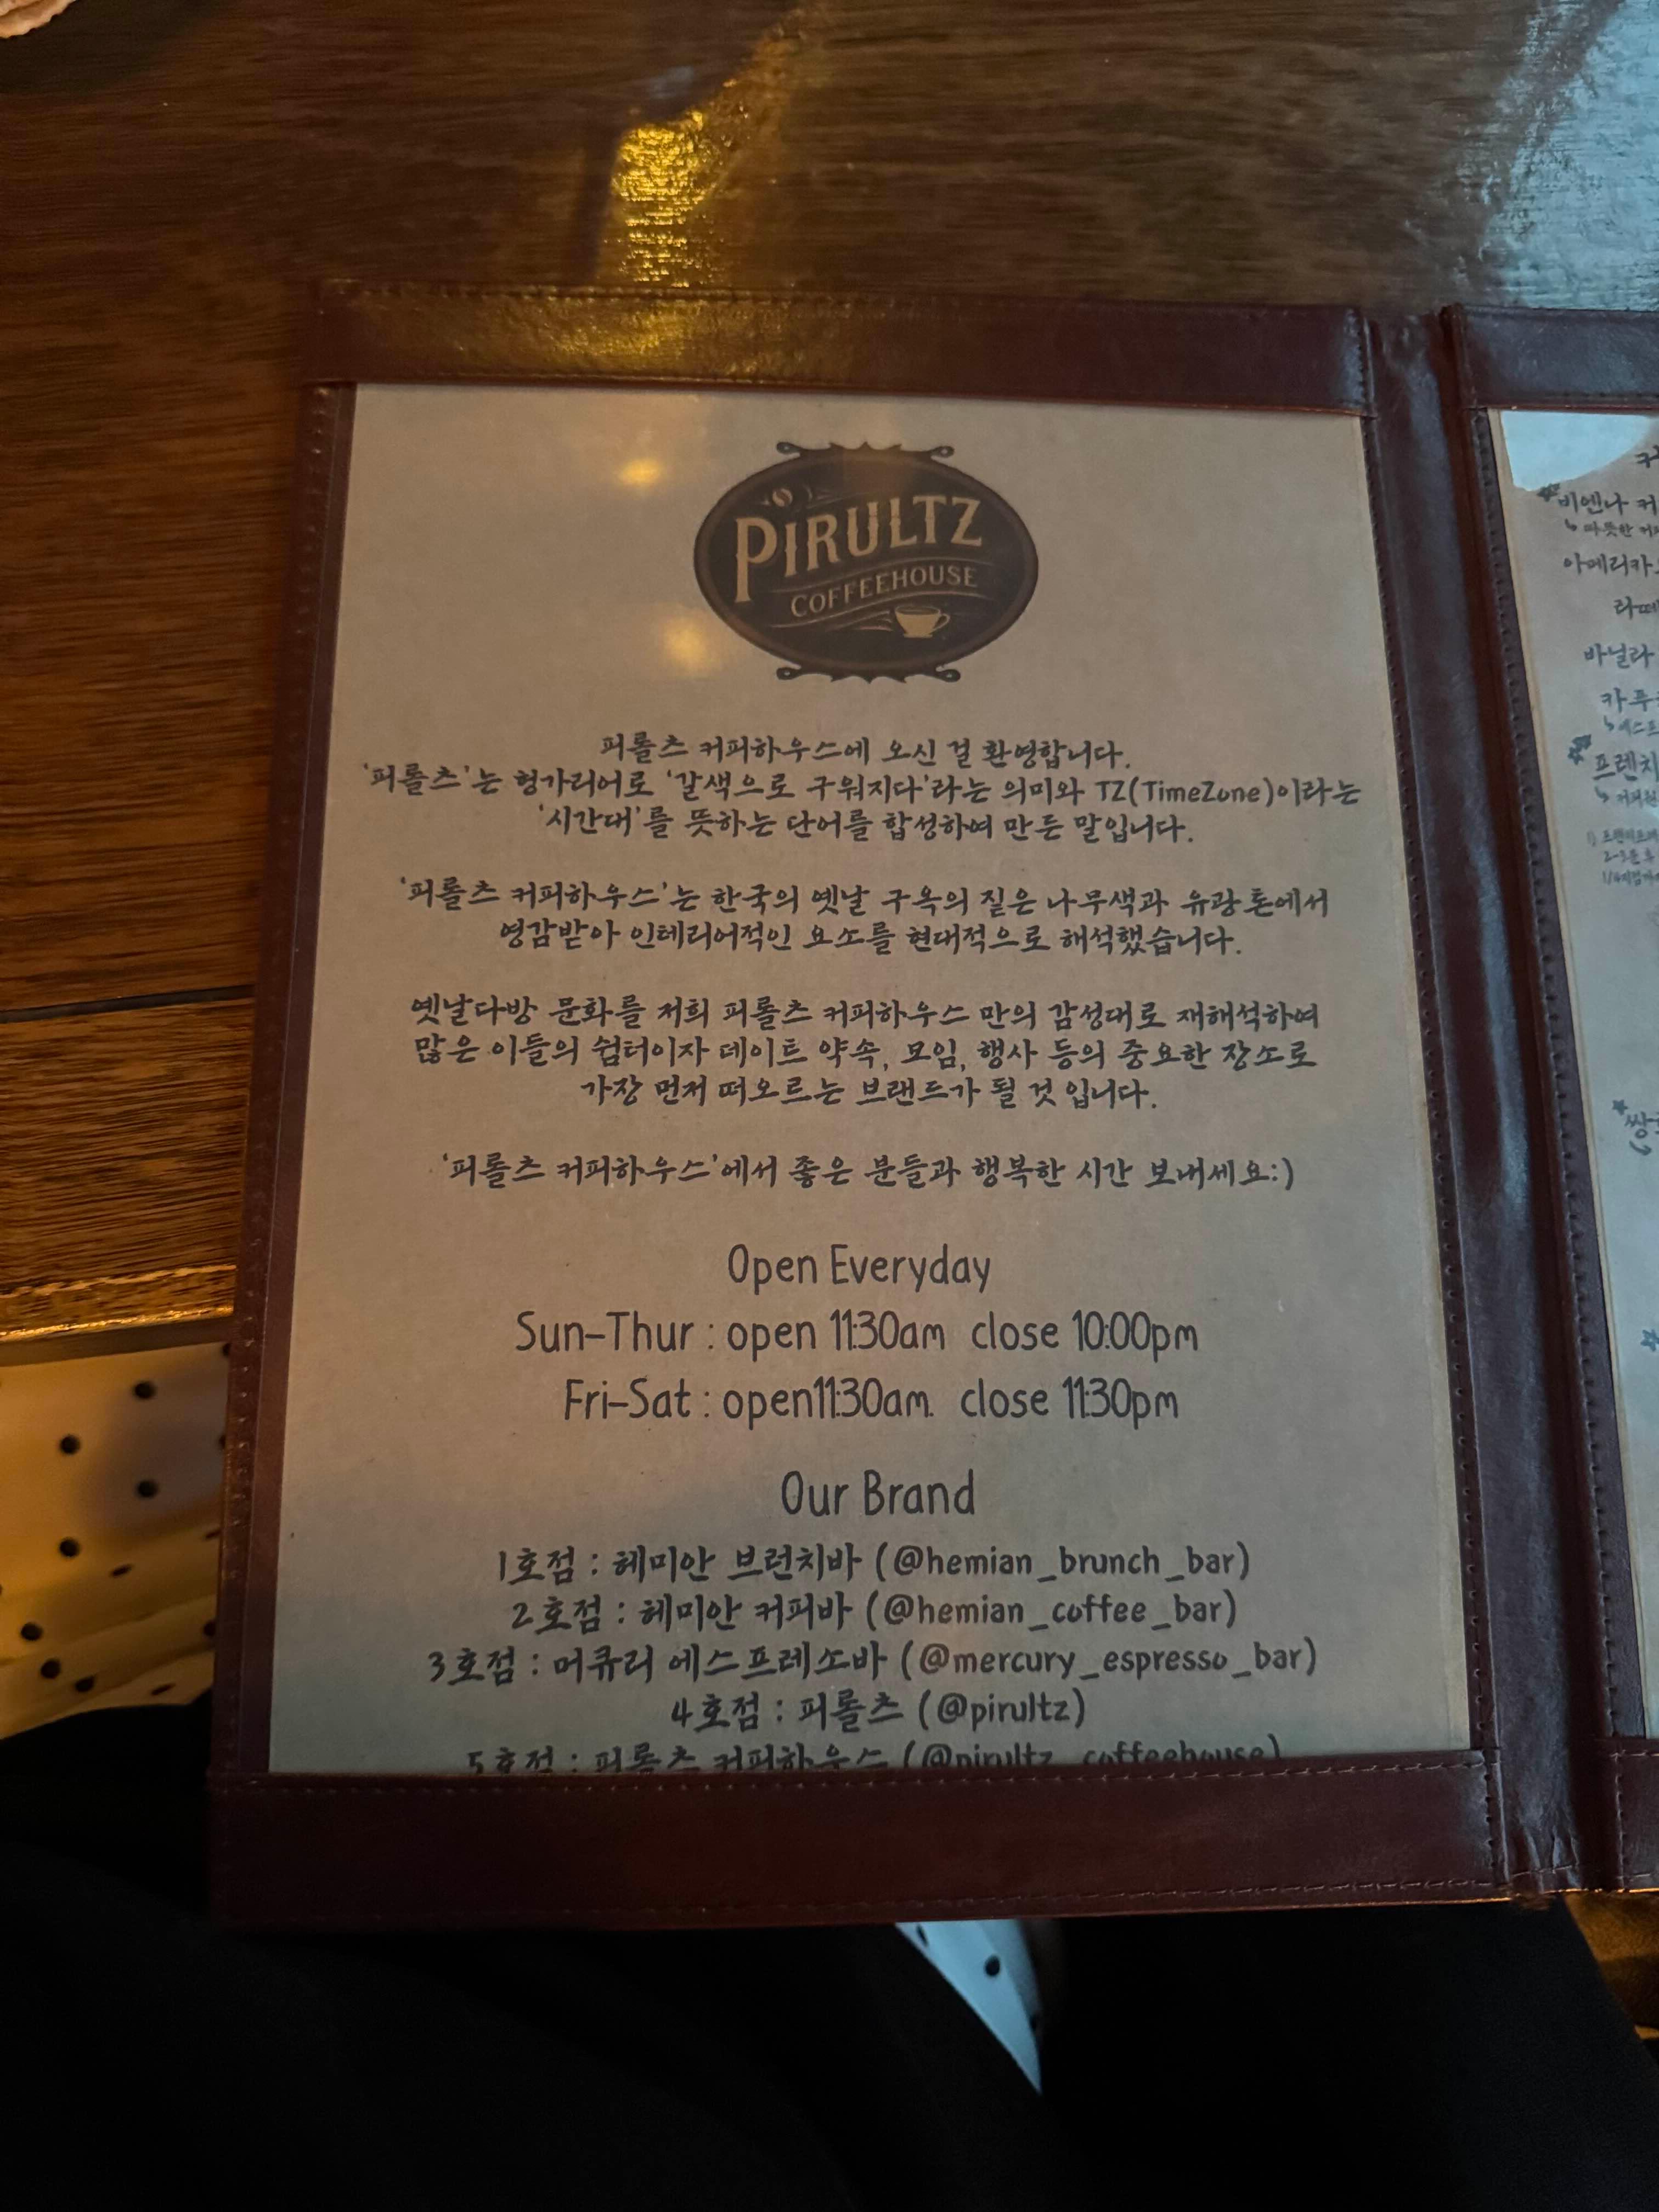 PIRULTZ
COFFEEHOUSE
피롤츠 커피하우스에 오신 걸 환영합니다.
'피롤츠'는 헝가리어로 '갈색으로 구워지다'라는 의미와 TZ(TimeZone)이라는
'시간대'를 뜻하는 단어를 합성하여 만든 말입니다.
'피롤츠 커피하우스'는 한국의 옛날 구옥의 짙은 나무색과 유광톤에서
영감받아 인테리어적인 요소를 현대적으로 해석했습니다.
옛날다방 문화를 저희 피롤츠 커피하우스 만의 감성대로 재해석하여
많은 이들의 쉼터이자 데이트 약속, 모임, 행사 등의 중요한 장소로
가장 먼저 떠오르는 브랜드가 될 것 입니다.
'피롤츠 커피하우스'에서 좋은 분들과 행복한 시간 보내세요:)
Open Everyday
Sun-Thur : open 11:30am close 10:00pm
Fri-Sat : open11:30am. close 11:30pm
Our Brand
1호점 : 헤미안 브런치바 (@hemian_brunch_bar)
2호점 : 헤미안 커피바 (@hemian_coffee_bar)
3호점 : 머큐리 에스프레소바 (@mercury_espresso_bar)
4호점 : 피롤츠 (@pirultz)
5호점 : 피롤츠 커피하우스 (@pirultz_coffeehouse)
비엔나
따뜻한
바닐라